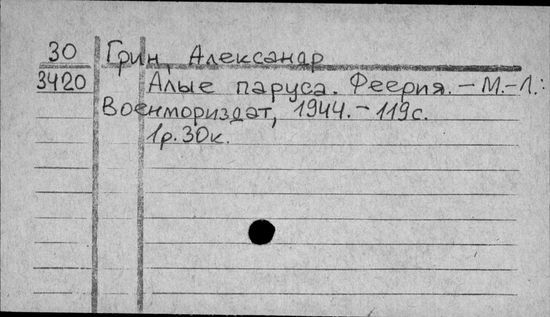 30 Грин, Александр
3420 Алые паруса. Феерия. – М.-Л.:
Военмориздат, 1944. – 119с.
1р. 30к.